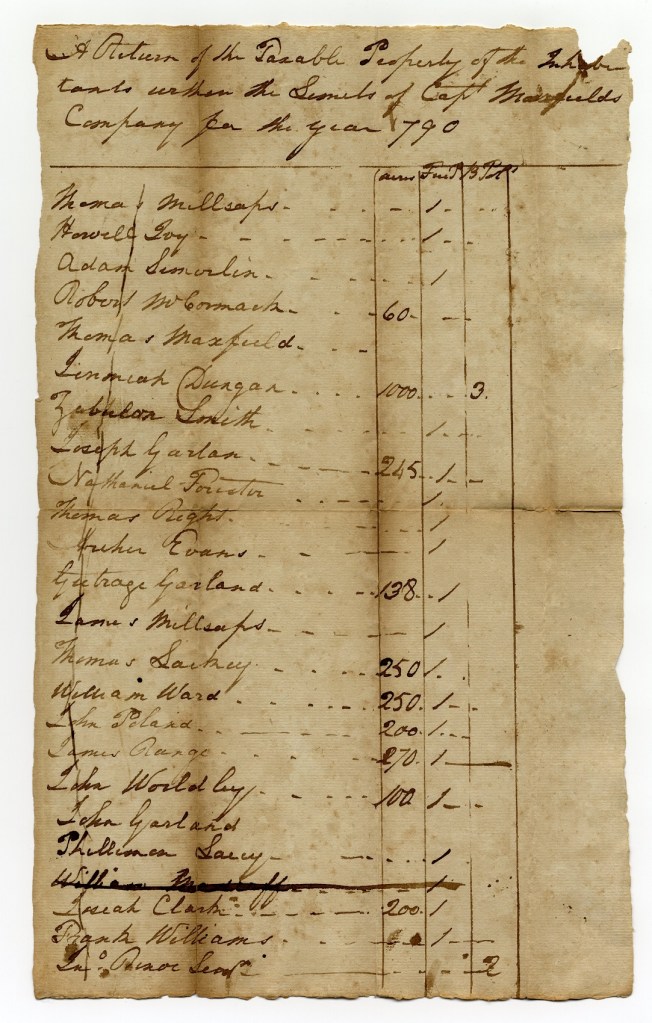 A Return of the Taxable Property of the Inhabi
tants within the Limits of Capt Maxfields
Company for the year 1790
acres
Thomas Millsaps - - - 1 -
Howell Ivy - - - - - - 1 -
Adam - - - - 1
Robert McCormack - - - 60 - -
Thomas Maxfield - -
Dungan - - - - 1000 - - 3
Zabulon Smith - - - 1 -
Joseph Garlan - - - - - 245 - 1 - -
Nathaniel - - - - 1
Thomas Right - - - - 1
Evans - - - 1
Garland - - - - 138 - 1
James Millsaps - - - - - 1
Thomas Lackey - - - - 250 1
William Ward - - - - 250 1 -
John Poland - - - - 200 1 - -
James Range - - - - 270 1 -
John Worldley - - - - 100 1 - -
John Garland
Phillimon Lacey - - - - 1
William - - - 1
Josiah Clark - - - - 200 1
Frank Williams - - - 1 -
Jno Senr - - 2